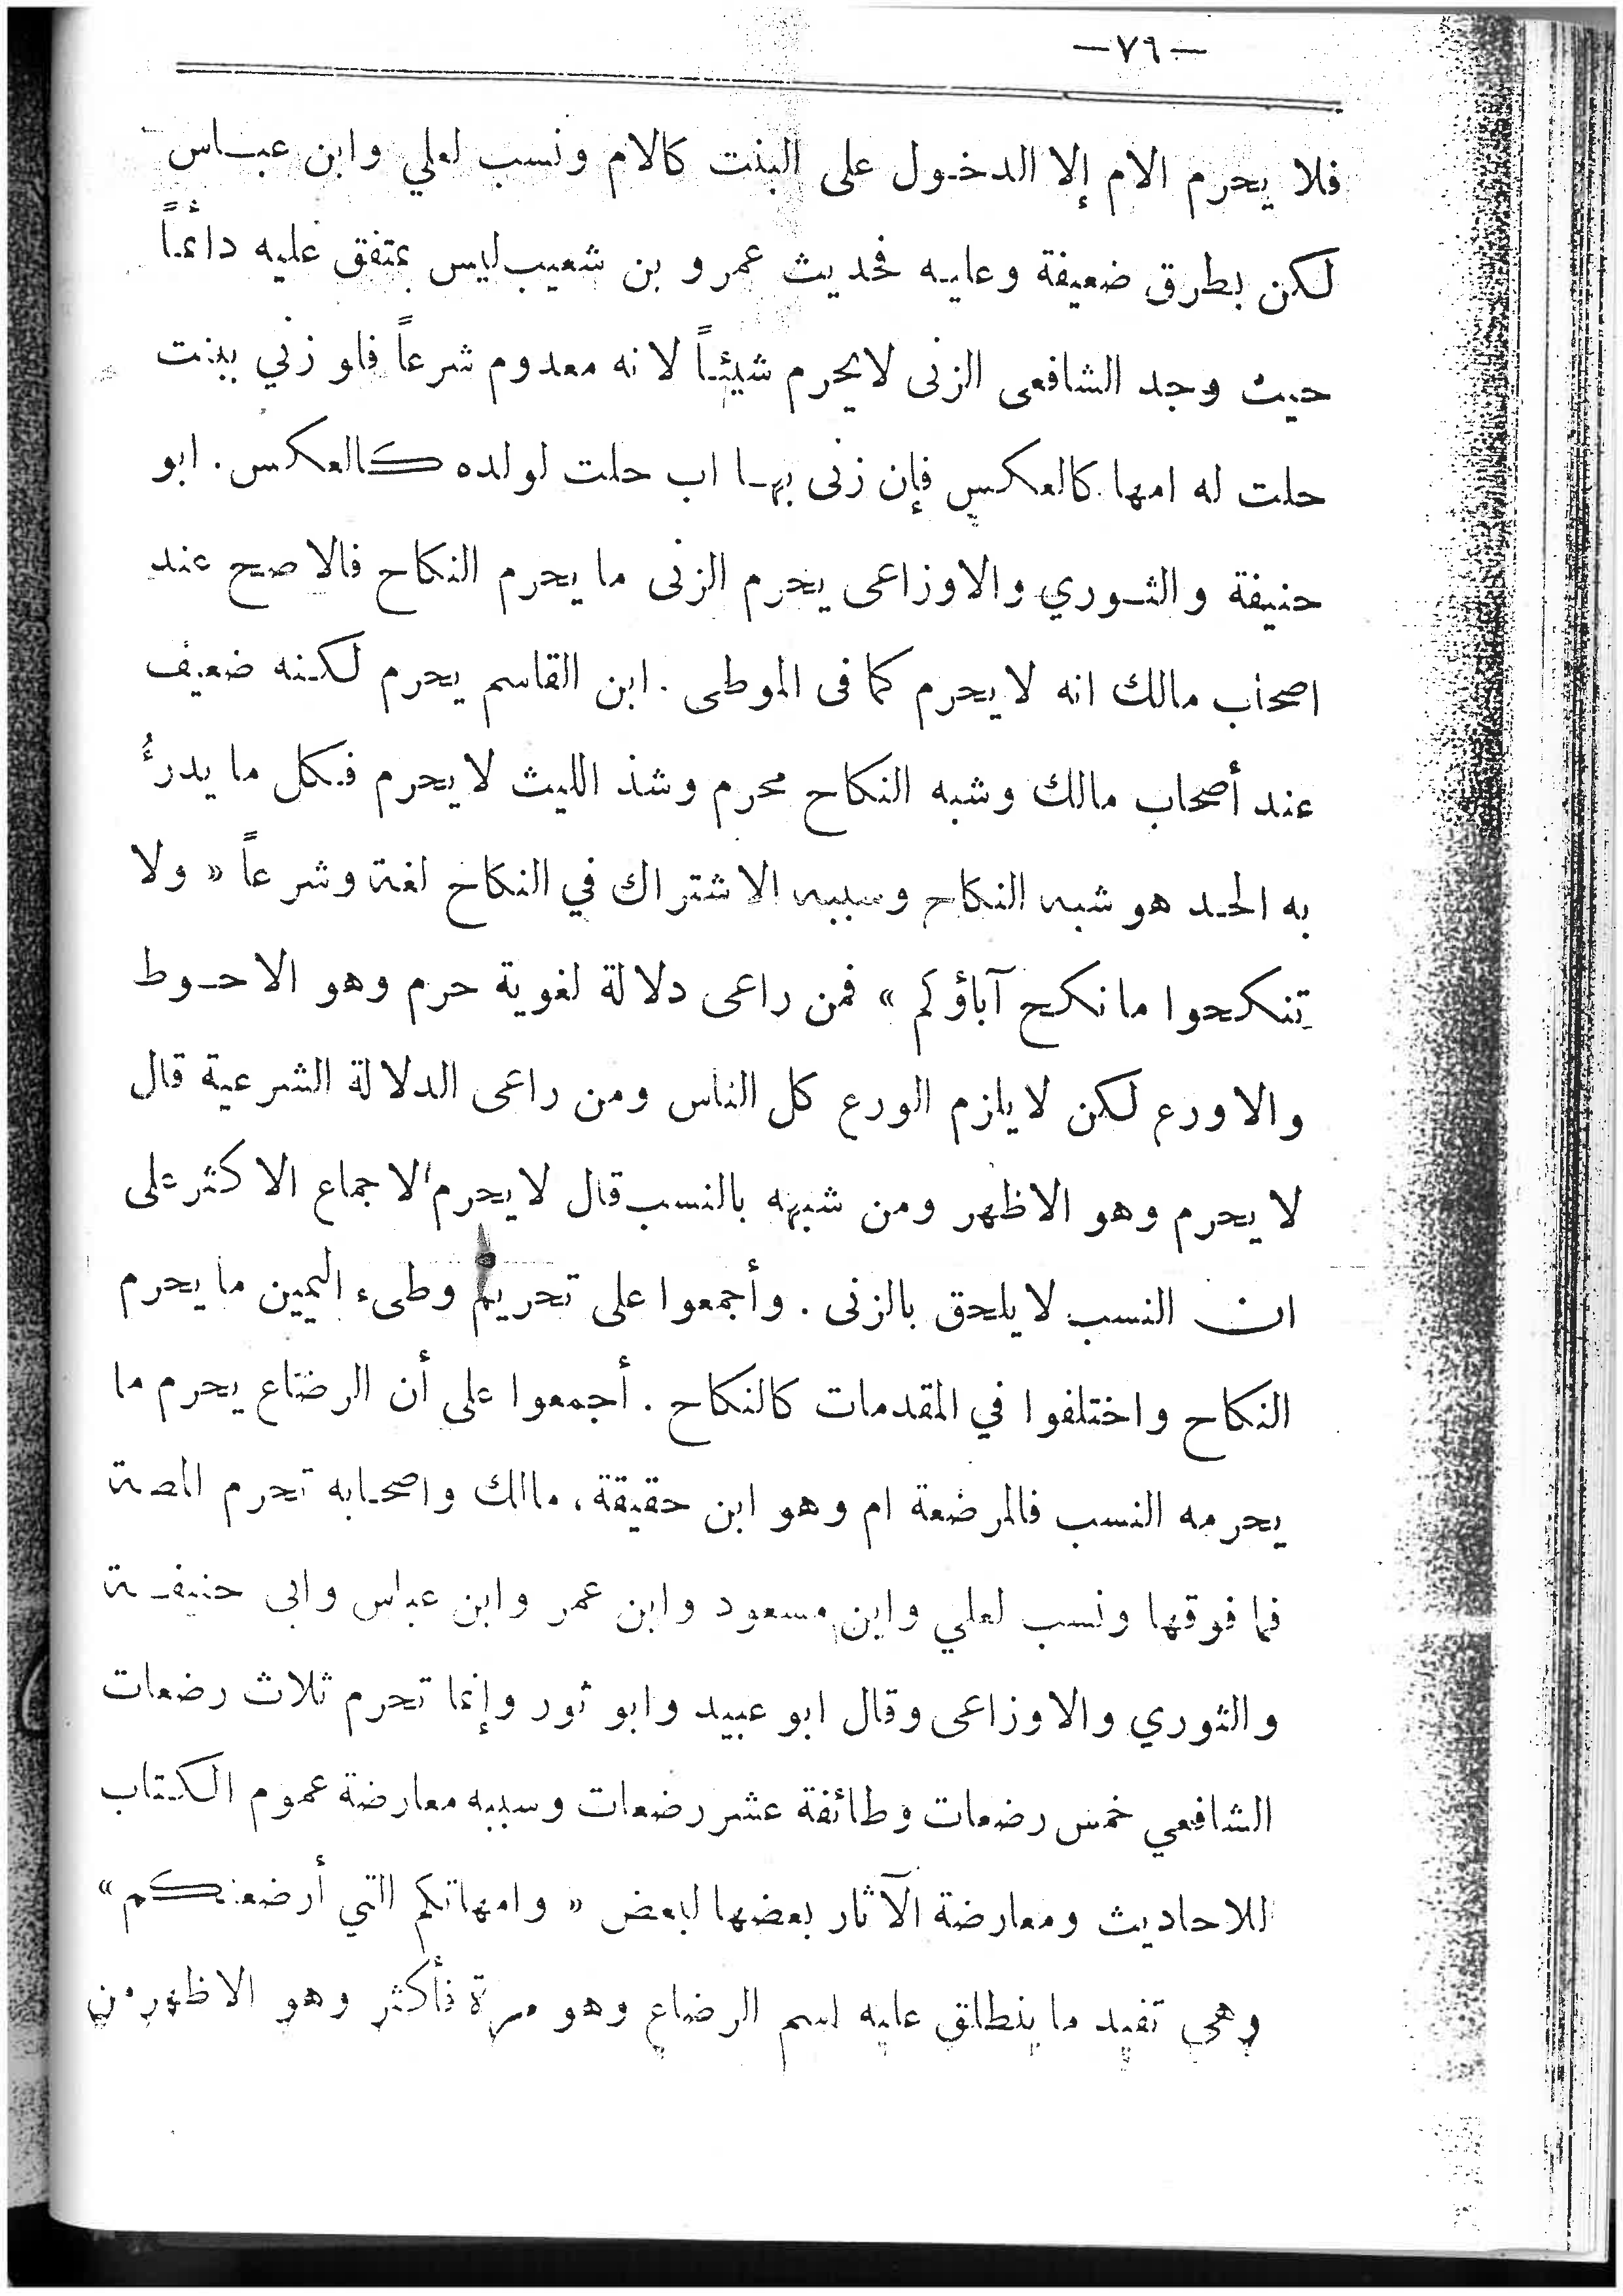 —٧٦—
فلا يحرم الام إلا الدخول على البنت كالام ونسب لعلي وابن عباس
لكن بطرق ضعيفة وعليه فحديث عمرو بن شعيب ليس بمتفق عليه دائماً
حيث وجد الشافعى الزنى لايحرم شيئاً لانه معدوم شرعاً فلو زني ببنت
حلت له امها كالعكس فإن زنى بها اب حلت لولده كالعكس . ابو
حنيفة والثوري والاوزاعى يحرم الزنى ما يحرم النكاح فالاصح عند
اصحاب مالك انه لايحرم كما فى الموطى . ابن القاسم يحرم لكنه ضعيف
عند أصحاب مالك وشبه النكاح محرم وشذ الليث لايحرم فكل ما يدرءُ
به الحد هو شبه النكاح وسببه الاشتراك في النكاح لغة وشرعاً « ولا
تنكحوا مانكح آباؤكم » فمن راعى دلالة لغوية حرم وهو الاحوط
والاورع لكن لايلزم الورع كل الناس ومن راعى الدلالة الشرعية قال
لايحرم وهو الاظهر ومن شبهه بالنسب قال لايحرم الاجماع الاكثر على
ان النسب لايلحق بالزنى . وأجمعوا على تحريم وطىء اليمين ما يحرم
النكاح واختلفوا في المقدمات كالنكاح . أجمعوا على أن الرضاع يحرم ما
يحرمه النسب فالمرضعة ام وهو ابن حقيقة، مالك واصحابه تحرم المصة
فما فوقها ونسب لعلي وابن مسعود وابن عمر وابن عباس وابى حنيفة
والثوري والاوزاعى وقال ابو عبيد وابو ثور وإنما تحرم ثلاث رضعات
الشافعي خمس رضعات وطائفة عشر رضعات وسببه معارضة عموم الكتاب
للاحاديث ومعارضة الآثار بعضها لبعض « وامهاتكم التي أرضعنكم »
وهى تفيد ما ينطلق عليه اسم الرضاع وهو مرة فأكثر وهو الاظهر من